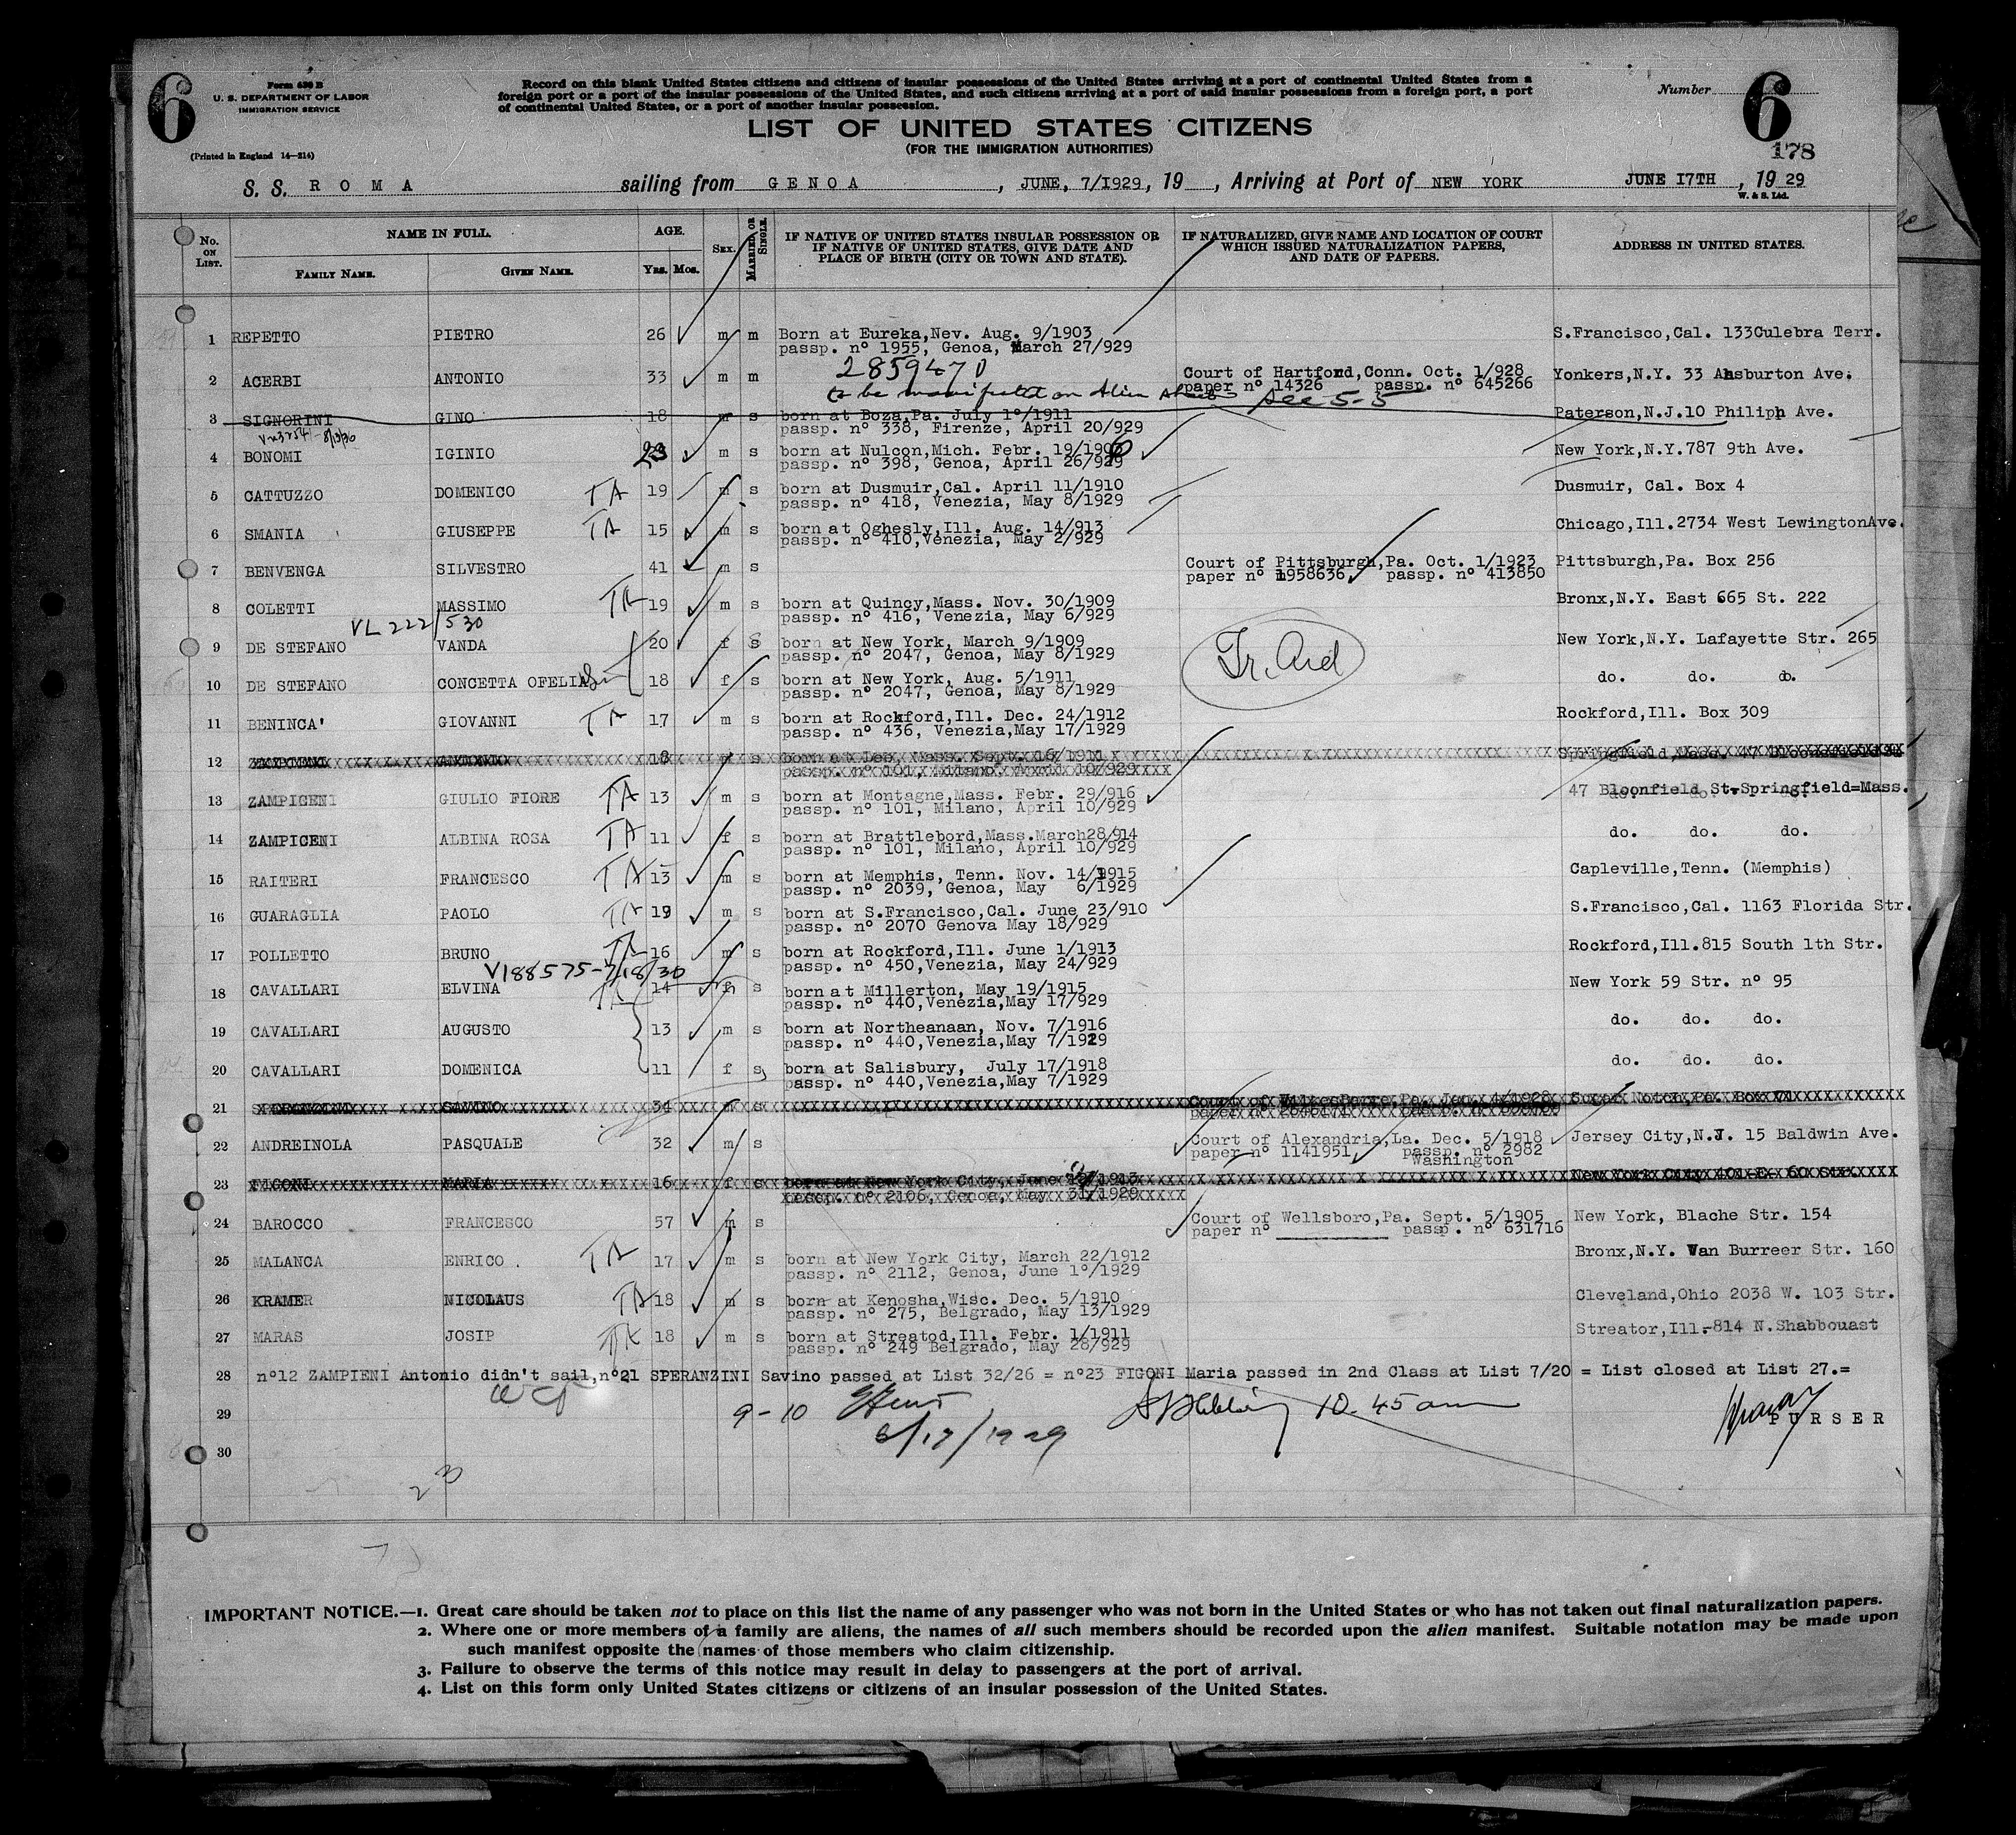 6
Form 630 B
U. S. DEPARTMENT OF LABOR
IMMIGRATION SERVICE
(Printed in England 14—214)
Record on this blank United States citizens and citizens of insular possessions of the United States arriving at a port of continental United States from a
foreign port or a port of the insular possessions of the United States, and such citizens arriving at a port of said insular possessions from a foreign port, a port
of continental United States, or a port of another insular possession.
Number 6
178
LIST OF UNITED STATES CITIZENS
(FOR THE IMMIGRATION AUTHORITIES)
S. S. ROMA sailing from GENOA, JUNE, 7/1929, 19 , Arriving at Port of NEW YORK JUNE 17TH, 19 29
W. & S. Ltd.
No. on List. NAME IN FULL. AGE. Sex. Married or Single. IF NATIVE OF UNITED STATES INSULAR POSSESSION OR IF NATIVE OF UNITED STATES, GIVE DATE AND PLACE OF BIRTH (CITY OR TOWN AND STATE). IF NATURALIZED, GIVE NAME AND LOCATION OF COURT WHICH ISSUED NATURALIZATION PAPERS, AND DATE OF PAPERS. ADDRESS IN UNITED STATES.
Family Name. Given Name. Yrs. Mos.
1 REPETTO PIETRO 26 m m Born at Eureka,Nev. Aug. 9/1903 S.Francisco,Cal. 133Culebra Terr.
passp. n° 1955, Genoa, March 27/929
2859470
2 ACERBI ANTONIO 33 m m Court of Hartford,Conn. Oct. 1/928 Yonkers,N.Y. 33 Ahsburton Ave.
paper n° 14326 passp. n° 645266
to be manifested on Alien sheet see 5-5
3 SIGNORINI GINO 18 m s born at Boza,Pa. July 1°/1911 Paterson,N.J.10 Philiph Ave.
passp. n° 338, Firenze, April 20/929
4 BONOMI IGINIO 23 m s born at Nulcon,Mich. Febr. 19/1906 New York,N.Y.787 9th Ave.
passp. n° 398, Genoa, April 26/929
5 CATTUZZO DOMENICO TA 19 m s born at Dusmuir,Cal. April 11/1910 Dusmuir, Cal. Box 4
passp. n° 418, Venezia, May 8/1929
6 SMANIA GIUSEPPE TA 15 m s born at Oghesly,Ill. Aug. 14/913 Chicago,Ill.2734 West LewingtonAve.
passp. n° 410,Venezia, May 2/929
7 BENVENGA SILVESTRO 41 m s Court of Pittsburgh,Pa. Oct. 1/1923 Pittsburgh,Pa. Box 256
paper n° 1958636 passp. n° 413850
8 COLETTI MASSIMO TA 19 m s born at Quincy,Mass. Nov. 30/1909 Bronx,N.Y. East 665 St. 222
passp. n° 416, Venezia, May 6/929
VL 222/530
9 DE STEFANO VANDA 20 f s born at New York, March 9/1909 New York,N.Y. Lafayette Str. 265
passp. n° 2047, Genoa, May 8/1929
Tr. Aid
10 DE STEFANO CONCETTA OFELIA 18 f s born at New York, Aug. 5/1911 do. do. do.
passp. n° 2047, Genoa, May 8/1929
11 BENINCA' GIOVANNI TA 17 m s born at Rockford,Ill. Dec. 24/1912 Rockford,Ill. Box 309
passp. n° 436, Venezia,May 17/1929
12 ANTONIO 18 s born at Lee, Mass. Sept. 16/1911 Springfield,Mass. 47
passp. n° 101, Milano, April 10/929
13 ZAMPICENI GIULIO FIORE TA 13 m s born at Montagne,Mass. Febr. 29/916 47 Bloonfield St.Springfield=Mass.
passp. n° 101, Milano, April 10/929
14 ZAMPICENI ALBINA ROSA TA 11 f s born at Brattlebord,Mass.March28/914 do. do. do.
passp. n° 101, Milano, April 10/929
15 RAITERI FRANCESCO TA 13 m s born at Memphis, Tenn. Nov. 14/1915 Capleville,Tenn. (Memphis)
passp. n° 2039, Genoa, May 6/1929
16 GUARAGLIA PAOLO TA 19 m s born at S.Francisco,Cal. June 23/910 S.Francisco,Cal. 1163 Florida Str.
passp. n° 2070 Genova May 18/929
17 POLLETTO BRUNO TA 16 m s born at Rockford,Ill. June 1/1913 Rockford,Ill.815 South 1th Str.
passp. n° 450,Venezia, May 24/929
V188575-7/18/30
18 CAVALLARI ELVINA TA 14 f s born at Millerton, May 19/1915 New York 59 Str. n° 95
passp. n° 440,Venezia,May 17/929
19 CAVALLARI AUGUSTO 13 m s born at Northeanaan, Nov. 7/1916 do. do. do.
passp. n° 440,Venezia,May 7/1929
20 CAVALLARI DOMENICA 11 f s born at Salisbury, July 17/1918 do. do. do.
passp. n° 440,Venezia,May 7/1929
21 SAVINO 34 s Court of Jan. 4/1928 Sugar Notch,Pa. Box 71
22 ANDREINOLA PASQUALE 32 m s Court of Alexandria,La. Dec. 5/1918 Jersey City,N.J. 15 Baldwin Ave.
paper n° 1141951 passp. n° 2982
Washington
23 FIGONI MARIA 16 f s born at New York City, June /1913 New York City 401 E. 60 Str.
passp. n° 2106, Genoa, May 31/1929
24 BAROCCO FRANCESCO 57 m s Court of Wellsboro,Pa. Sept. 5/1905 New York, Blache Str. 154
paper n° passp. n° 631716
25 MALANCA ENRICO . TA 17 m s born at New York City, March 22/1912 Bronx,N.Y. Van Burreer Str. 160
passp. n° 2112, Genoa, June 1°/1929
26 KRAMER NICOLAUS TA 18 m s born at Kenosha,Wisc. Dec. 5/1910 Cleveland,Ohio 2038 W. 103 Str.
passp. n° 275, Belgrado, May 13/1929
27 MARAS JOSIP TA 18 m s born at Streatod,Ill. Febr. 1/1911 Streator,Ill.-814 N.Shabbouast
passp. n° 249 Belgrado, May 28/929
28 n°12 ZAMPIENI Antonio didn't sail,n°21 SPERANZINI Savino passed at List 32/26 = n°23 FIGONI Maria passed in 2nd Class at List 7/20 = List closed at List 27.=
29 9-10 10.45 am PURSER
6/17/1929
30
23
IMPORTANT NOTICE.—1. Great care should be taken not to place on this list the name of any passenger who was not born in the United States or who has not taken out final naturalization papers.
2. Where one or more members of a family are aliens, the names of all such members should be recorded upon the alien manifest. Suitable notation may be made upon
such manifest opposite the names of those members who claim citizenship.
3. Failure to observe the terms of this notice may result in delay to passengers at the port of arrival.
4. List on this form only United States citizens or citizens of an insular possession of the United States.